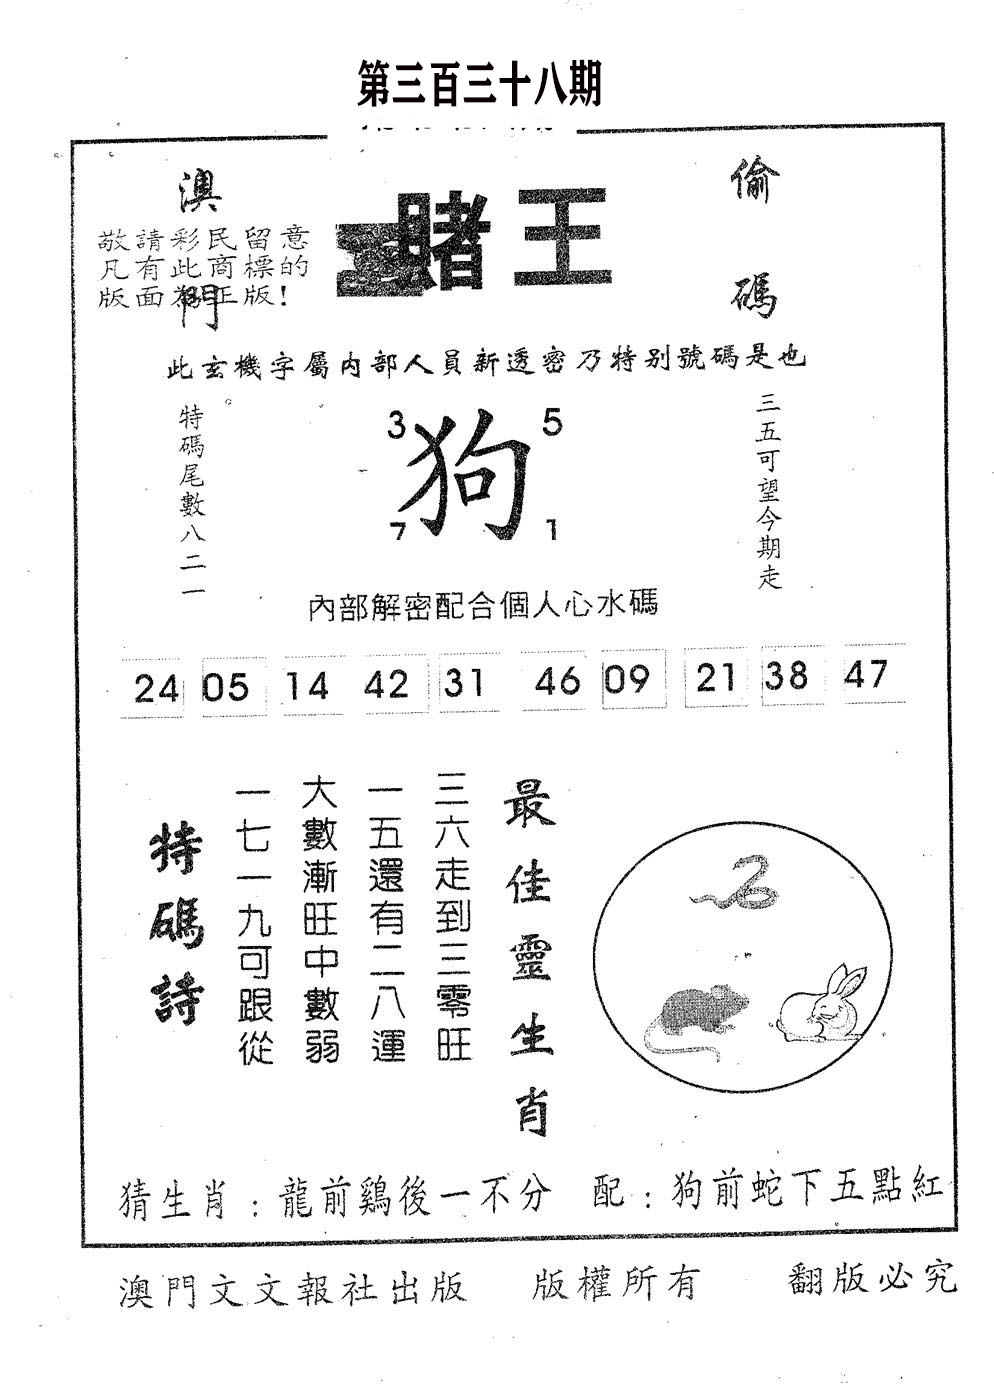 第三百三十八期
澳門
賭王
偷碼
敬請彩民留意
凡有此商標的
版面為正版!
此玄機字屬內部人員新透密乃特別號碼是也
特碼尾數八二一
3
5
狗
7
1
三五可望今期走
內部解密配合個人心水碼
24 05 14 42 31 46 09 21 38 47
最佳靈生肖
三六走到三零旺
一五還有二八運
大數漸旺中數弱
一七一九可跟從
特碼詩
猜生肖:龍前鷄後一不分 配:狗前蛇下五點紅
澳門文文報社出版 版權所有 翻版必究